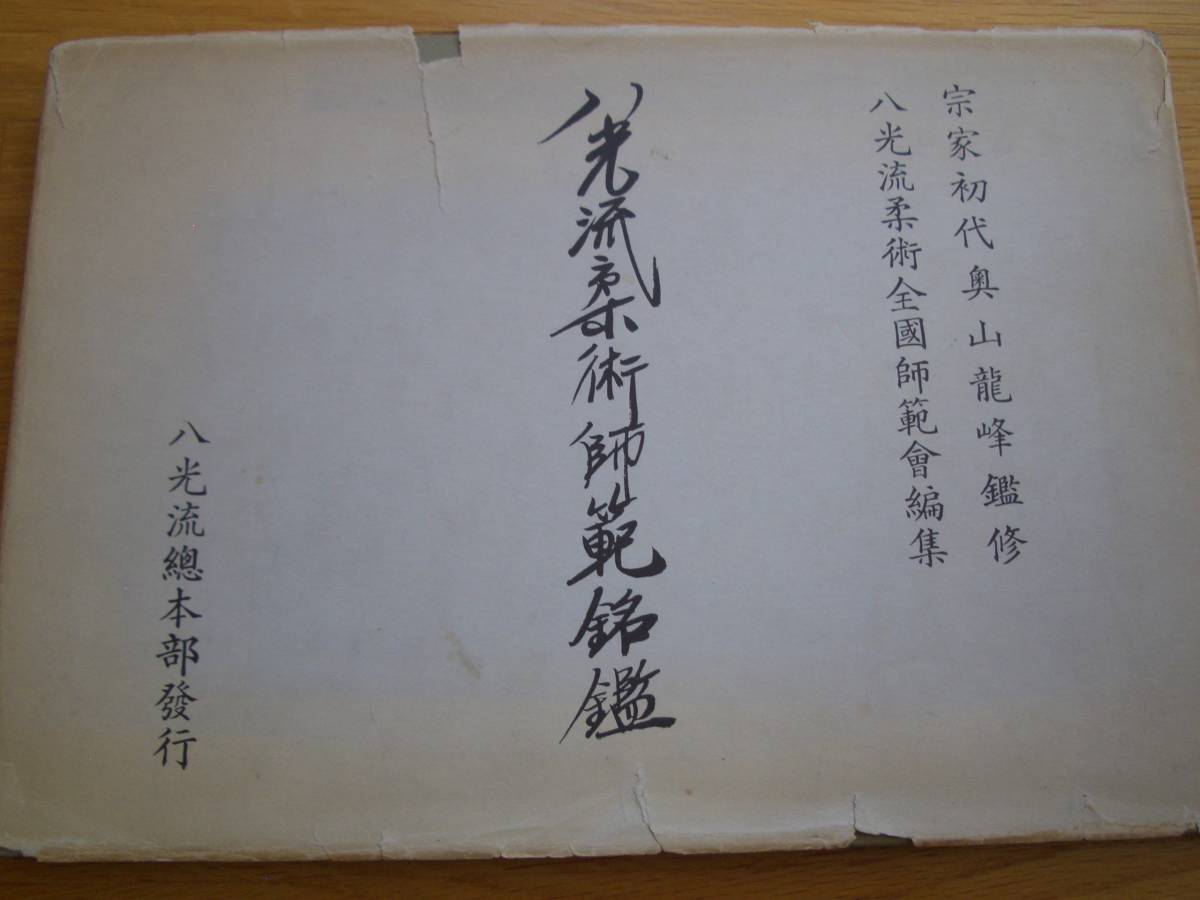 宗家初代奥山龍峰鑑修
八光流柔術全國師範會編集
八光流柔術師範銘鑑
八光流總本部發行